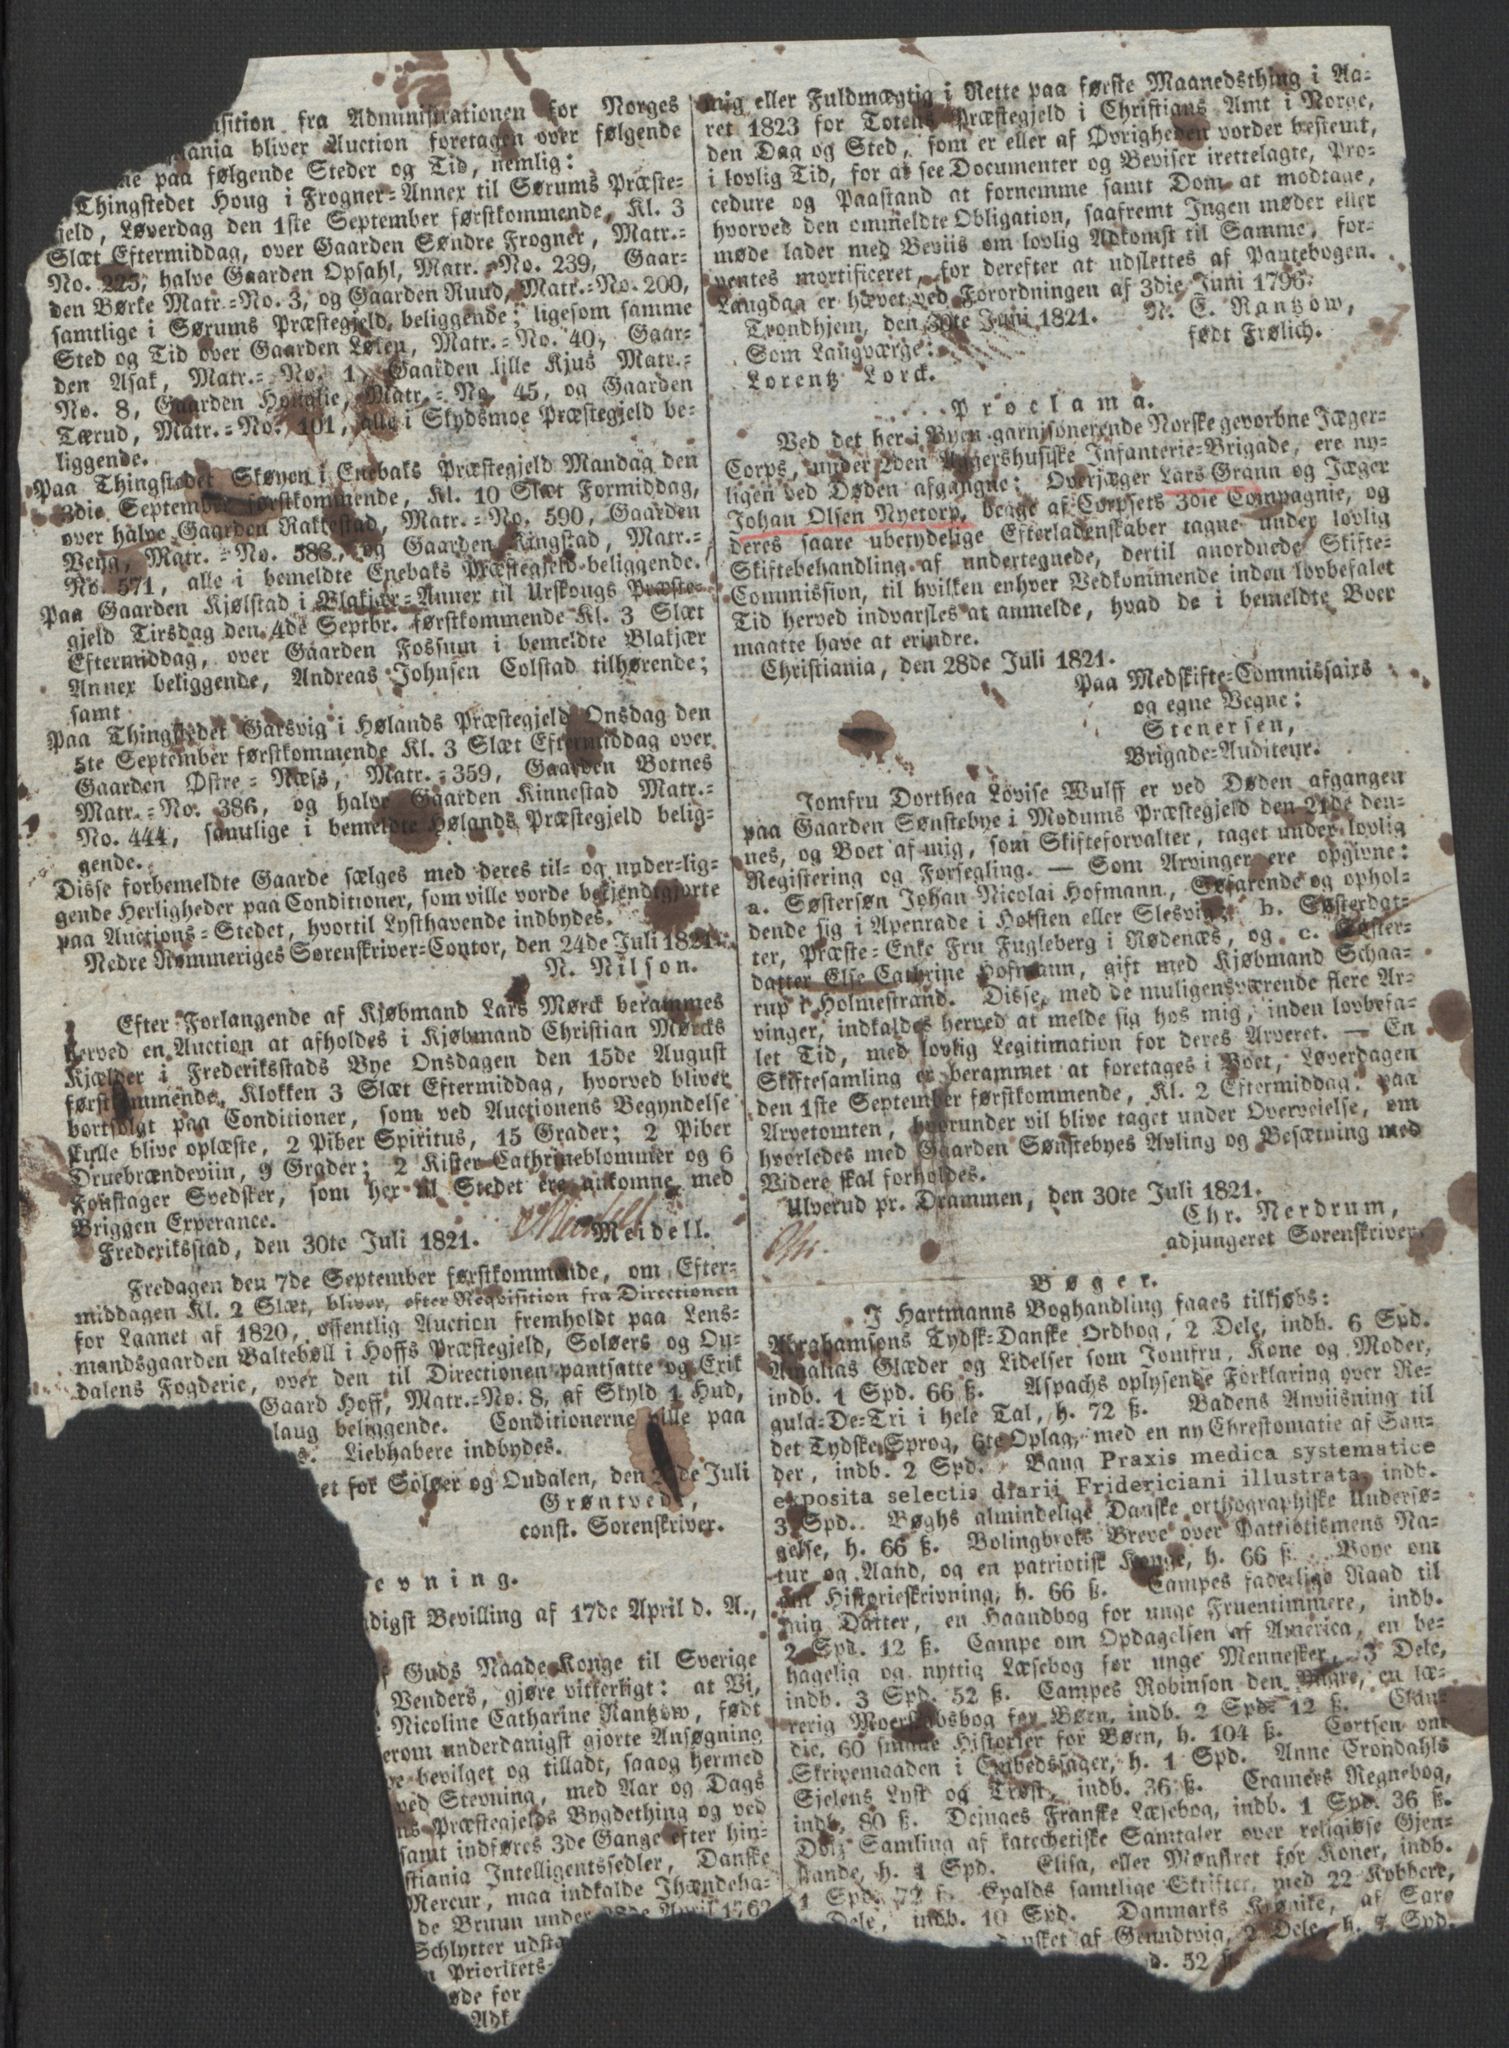 sition fra Administrationen for Norges
ania bliver Auction foretagen over følgende
ne paa følgende Steder og Tid, nemlig:
Thingstedet Houg i Frogner-Annex til Sørums Præste-
gjeld, Løverdag den 1ste September førstkommende, Kl. 3
Slæt Eftermiddag, over Gaarden Søndre Frogner, Matr.-
No. 225, halve Gaarden Opsahl, Matr.-No. 239, Gaar-
den Børke Matr.-No. 3, og Gaarden Ruud, Matr.-No. 200,
samtlige i Sørums Præstegjeld beliggende; ligesom samme
Sted og Tid over Gaarden Løken, Matr.-No. 40, Gaar-
den Asak, Matr.-No. 1, Gaarden lille Kjus Matr.-
No. 8, Gaarden Matr.-No. 45, og Gaarden
Tærud, Matr.-No. 101, alle i Skydsmoe Præstegjeld be-
liggende.
Paa Thingstedet Skøyen i Enebaks Præstegjeld Mandag den
3die September førstkommende, Kl. 10 Slæt Formiddag,
over halve Gaarden Rakkestad, Matr.-No. 590, Gaarden
Veng, Matr.-No. 586, og Gaarden Ringstad, Matr.-
No. 571, alle i bemeldte Enebaks Præstegjeld beliggende.
Paa Gaarden Kjølstad i Blakjær-Annex til Urskougs Præste-
gjeld Tirsdag den 4de Septbr. førstkommende Kl. 3 Slæt
Eftermiddag, over Gaarden Fossum i bemeldte Blakjær
Annex beliggende, Andreas Johnsen Colstad tilhørende;
samt
Paa Thingstedet Garsvig i Hølands Præstegjeld Onsdag den
5te September førstkommende Kl. 3 Slæt Eftermiddag over
Gaarden Østre-Næss, Matr.-359, Gaarden Botnes
Matr.-No. 386, og halve Gaarden Kinnestad Matr.-
No. 444, samtlige i bemeldte Hølands Præstegjeld belig-
gende.
Disse forbemeldte Gaarde sælges med deres til- og under-lig-
gende Herligheder paa Conditioner, som ville vorde bekjendtgjorte
paa Auctions-Stedet, hvortil Lysthavende indbydes.
Nedre Rommeriges Sorenskriver-Contor, den 24de Juli 1821.
N. Nilson.
Efter Forlangende af Kjøbmand Lars Mørck berammes
herved en Auction at afholdes i Kjøbmand Christian Mørcks
Kjælder i Frederiksstads Bye Onsdagen den 15de August
førstkommende, Klokken 3 Slæt Eftermiddag, hvorved bliver
bortsolgt paa Conditioner, som ved Auctionens Begyndelse
skulle blive oplæste, 2 Piber Spiritus, 15 Grader; 2 Piber
Druebrændeviin, 9 Grader; 2 Kister Cathrineblommer og 6
Foustager Svedsker, som her til Stedet ere ankomne med
Briggen Experance.
Frederiksstad, den 30te Juli 1821. Meidell.
Fredagen den 7de September førstkommende, om Efter-
middagen Kl. 2 Slæt, bliver, efter Reqvisition fra Directionen
for Laanet af 1820, offentlig Auction fremholdt paa Lens-
mandsgaarden Baltebøll i Hoffs Præstegjeld, Soløers og Ou-
dalens Fogderie, over den til Directionen pantsatte og Erik
Gaard Hoff, Matr.-No. 8, af Skyld 1 Hud,
laug beliggende. Conditionerne ville paa
s. Liebhabere indbydes.
et for Soløer og Oudalen, den de Juli
Grøntvedt,
const. Sorenskriver.
evning.
digst Bevilling af 17de April d. A.,
f Guds Naade Konge til Sverige
Venders, gjøre vitterligt: at Vi,
Nicoline Catharine Rantzow, født
erom underdanigst gjorte Ansøgning
ve bevilget og tilladt, saaog hermed
ved Stevning, med Aar og Dags
ns Præstegjelds Bygdething og ved
samt indføres 3de Gange efter hin-
stiania Intelligentssedler, Danske
Mercur, maa indkalde Ihændeha-
de Bruun under 28de April 1762
Schlytter udsta
n Prioritets-
øde for
Adk
mig eller Fuldmægtig i Rette paa første Maanedsthing i Aa-
ret 1823 for Totens Præstegjeld i Christians Amt i Norge,
den Dag og Sted, som er eller af Øvrigheden vorder bestemt,
i lovlig Tid, for at see Documenter og Beviser irettelagte, Pro-
cedure og Paastand at fornemme samt Dom at modtage,
hvorved den ommeldte Obligation, saafremt Ingen møder eller
møde lader med Beviis om lovlig Adkomst til Samme, for-
ventes mortificeret, for derefter at udslettes af Pantebogen.
Laugdag er hævet ved Forordningen af 3die Juni 1796.
Trondhjem, den 30te Juni 1821. N. C. Rantzow,
født Frølich.
Som Laugværge:
Lorentz Lorck.
Proclama.
Ved det her i Byen garnisonerende Norske gevorbne Jæger-
Corps, under 2den Aggershusiske Infanterie-Brigade, ere ny-
ligen ved Døden afgangne: Overjæger Lars Grann og Jæger
Johan Olsen Nyetorp, begge af Corpsets 3die Compagnie, og
deres saare ubetydelige Efterladenskaber tagne under lovlig
Skiftebehandling af undertegnede, dertil anordnede Skifte-
Commission, til hvilken enhver Vedkommende inden lovbefalet
Tid herved indvarsles at anmelde, hvad de i bemeldte Boer
maatte have at erindre.
Christiania, den 28de Juli 1821.
Paa Medskifte-Commissairs
og egne Vegne:
Stenersen,
Brigade-Auditeur.
Jomfru Dorthea Lovise Wulff er ved Døden afgangen
paa Gaarden Sønstebye i Modums Præstegjeld den 21de den-
nes, og Boet af mig, som Skifteforvalter, taget under lovlig
Registering og Forsegling. — Som Arvinger ere opgivne:
a. Søstersøn Johan Nicolai Hofmann, Søfarende og ophol-
dende sig i Apenrade i Holsten eller Slesvig; b. Søsterdat-
ter, Præste-Enke Fru Fugleberg i Rødenæs, og c. Søster-
datter Else Cathrine Hofmann, gift med Kjøbmand Schaa-
rup i Holmestrand. Disse, med de muligensværende flere Ar-
vinger, indkaldes herved at melde sig hos mig, inden lovbefa-
let Tid, med lovlig Legitimation for deres Arveret. — En
Skiftesamling er berammet at foretages i Boet, Løverdagen
den 1ste September førstkommende, Kl. 2 Eftermiddag, paa
Arvetomten, hvorunder vil blive taget under Overveielse, om
hvorledes med Gaarden Sønstebyes Avling og Besætning med
Videre skal forholdes.
Ulverud pr. Drammen, den 30te Juli 1821.
Chr. Nerdrum,
adjungeret Sorenskriver.
Bøger.
I Hartmanns Boghandling faaes tilkjøbs:
Abrahamsons Tydsk-Danske Ordbog, 2 Dele, indb. 6 Spd.
Amalias Glæder og Lidelser som Jomfru, Kone og Moder,
indb. 1 Spd. 66 ß. Aspachs oplysende Forklaring over Re-
gula-De-Tri i hele Tal, h. 72 ß. Badens Anviisning til
det Tydske Sprog, 6te Oplag, med en ny Chrestomatie af San-
der, indb. 2 Spd. Bang Praxis medica systematice
exposita selectis diarii Fridericiani illustrata, indb.
3 Spd. Bøghs almindelige Danske orthographiske Undersø-
gelse, h. 66 ß. Bolingbroks Breve over Patriotismens Na-
tur og Aand, og en patriotisk Konge, h. 66 ß. Boye om
om Historieskrivning, h. 66 ß. Campes faderlige Raad til
min Datter, en Haandbog for unge Fruentimmere, indb.
2 Spd. 12 ß. Campe om Opdagelsen af America, en be-
hagelig og nyttig Læsebog for unge Mennesker, 3 Dele,
indb. 3 Spd. 52 ß. Campes Robinson den Yngre, en læ-
rerig Moerskabsbog for Børn, indb. 2 Spd. 12 ß. Clau-
die, 60 smaae Historier for Børn, h. 104 ß. Cortsen om
Skrivemaaden i Embedssager, h. 1 Spd. Anne Crondahls
Sjelens Lyst og Trøst, indb. 36 ß. Cramers Regnebog,
indb. 80 ß. Deinges Franske Læsebog, indb. 1 Spd. 36 ß.
Dolz Samling af katechetiske Samtaler over religiøse Gjen-
stande, h. 1 Spd. Elisa, eller Mønstret for Koner, indb.
1 Spd. 72 ß. Evalds samtlige Skrifter, med 22 Kobbere,
Dele, indb. 10 Spd. Danmarks Krønike, af Saxo
vsket af Grundtvig, 2 Dele, h. Spd.
d. 52 ß